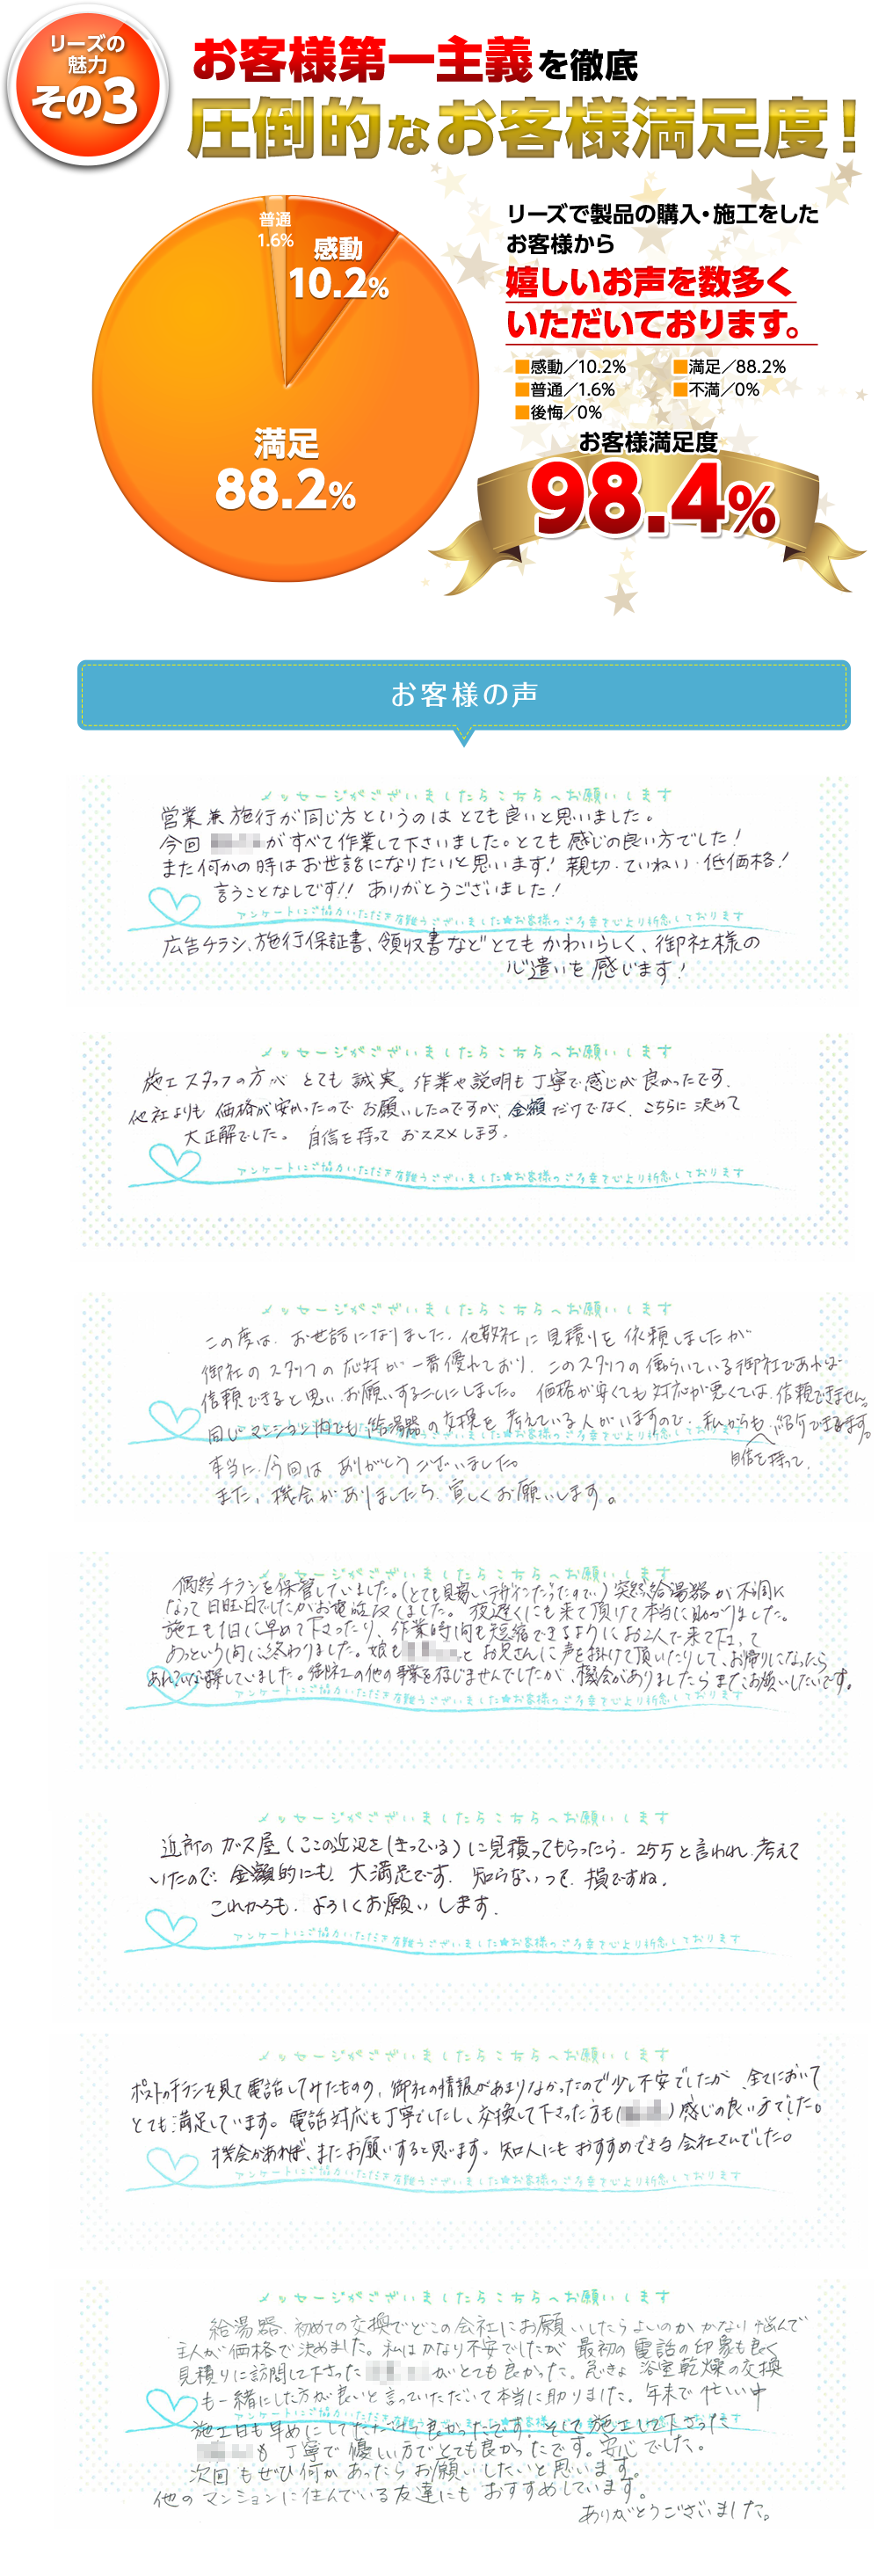 リーズの
魅力
その3
お客様第一主義を徹底
圧倒的なお客様満足度!
普通
1.6%
感動
10.2%
満足
88.2%
リーズで製品の購入・施工をした
お客様から
嬉しいお声を数多く
いただいております。
■感動／10.2% ■満足／88.2%
■普通／1.6% ■不満／0%
■後悔／0%
お客様満足度
98.4%
お客様の声
メッセージがございましたらこちらへお願いします
営業兼施行が同じ方というのはとても良いと思いました。
今回 がすべて作業して下さいました。とても感じの良い方でした!
また何かの時はお世話になりたいと思います! 親切・ていねい・低価格!
言うことなしです!! ありがとうございました!
アンケートにご協力いただき有難うございました★お客様のご多幸を心より祈念しております
広告チラシ、施行保証書、領収書などとてもかわいらしく、御社様の
心遣いを感じます!
メッセージがございましたらこちらへお願いします
施工スタッフの方が とても誠実。作業や説明も丁寧で感じが良かったです.
他社よりも 価格が安かったので お願いしたのですが、金額だけでなく、こちらに決めて
大正解でした。 自信を持って おススメします.
アンケートにご協力いただき有難うございました★お客様のご多幸を心より祈念しております
メッセージがございましたらこちらへお願いします
この度は、お世話になりました. 他数社に見積りを依頼しましたが
御社のスタッフの応対が一番優れており、このスタッフの働らいている御社であれば
信頼できると思い、お願いすることにしました。 価格が安くても対応が悪くては、信頼できません。
同じマンション内でも給湯器の交換を考えている人がいますので、私からも、紹介できます。
アンケートにご協力いただき有難うございました★お客様のご多幸を心より祈念しております
自信を持って、
本当に、今回は ありがとうございました。
また、機会がありましたら、宜しくお願いします。
メッセージがございましたらこちらへお願いします
偶然チラシを保管していました。(とても見易いデザインだったので。) 突然給湯器が不調に
なって日曜日でしたがお電話しました。 夜遅くにも来て頂けて本当に助かりました。
施工も1日に早めて下さったり、作業時間も短縮できるようにお2人で来て下さって
あっという間に終わりました。娘も と お兄さんに声を掛けて頂いたりして、お帰りになったら
探していました。御社の他の事業を存じませんでしたが、機会がありましたらまたお願いしたいです。
アンケートにご協力いただき有難うございました★お客様のご多幸を心より祈念しております
メッセージがございましたらこちらへお願いします
近所のガス屋(ここの近辺をしきっている)に見積ってもらったら、25万と言われ、考えて
いたので、金額的にも、大満足です. 知らないって、損ですね.
これからも、よろしくお願いします.
アンケートにご協力いただき有難うございました★お客様のご多幸を心より祈念しております
メッセージがございましたらこちらへお願いします
ポストのチラシを見て電話してみたものの、御社の情報があまりなかったので少し不安でしたが、全てにおいて
とても満足しています。電話対応も丁寧でしたし、交換して下さった方も( )感じの良い方でした。
機会があれば、またお願いすると思います。知人にもおすすめできる会社さんでした。
アンケートにご協力いただき有難うございました★お客様のご多幸を心より祈念しております
メッセージがございましたらこちらへお願いします
給湯器、初めての交換でどこの会社にお願いしたらよいのかかなり悩んで
主人が価格で決めました。私はかなり不安でしたが最初の電話の印象も良く
見積りに訪問して下さった がとても良かった。急きょ浴室乾燥の交換
も一緒にした方が良いと言っていただいて本当に助かりました。年末で忙しい中
アンケートにご協力いただき有難うございました★お客様のご多幸を心より祈念しております
施工日も早めにしていただけて良かったです。そして施工して下さった
も 丁寧で優しい方でとても良かったです。安心でした。
次回もぜひ何かあったらお願いしたいと思います。
他のマンションに住んでいる友達にもおすすめしています。
ありがとうございました。